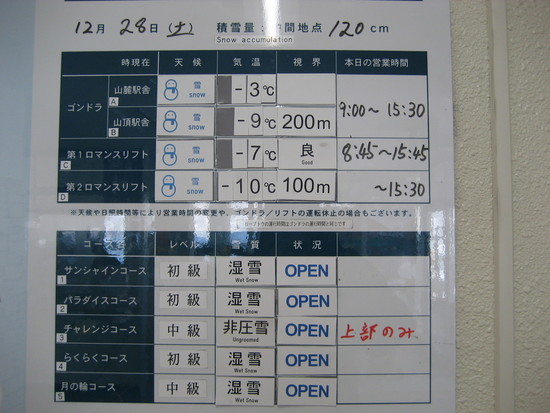 12月 28日(土) 積雪量:中間地点 120cm
Snow accumulation
時現在 天候 気温 視界 本日の営業時間
ゴンドラ 山麓駅舎 A 雪 snow -3℃ 9:00〜15:30
山頂駅舎 B 雪 snow -9℃ 200m
第1ロマンスリフト C 雪 snow -7℃ 良 Good 8:45〜15:45
第2ロマンスリフト D 雪 snow -10℃ 100m 〜15:30
※天候や日照時間等により営業時間の変更や、ゴンドラ/リフトの運転休止の場合もございます。
コース名 レベル 雪質 状況
サンシャインコース 1 初級 湿雪 Wet Snow OPEN
パラダイスコース 2 初級 湿雪 Wet Snow OPEN
チャレンジコース 3 中級 非圧雪 Ungroomed OPEN 上部のみ
らくらくコース 4 初級 湿雪 Wet Snow OPEN
月の輪コース 5 中級 湿雪 Wet Snow OPEN